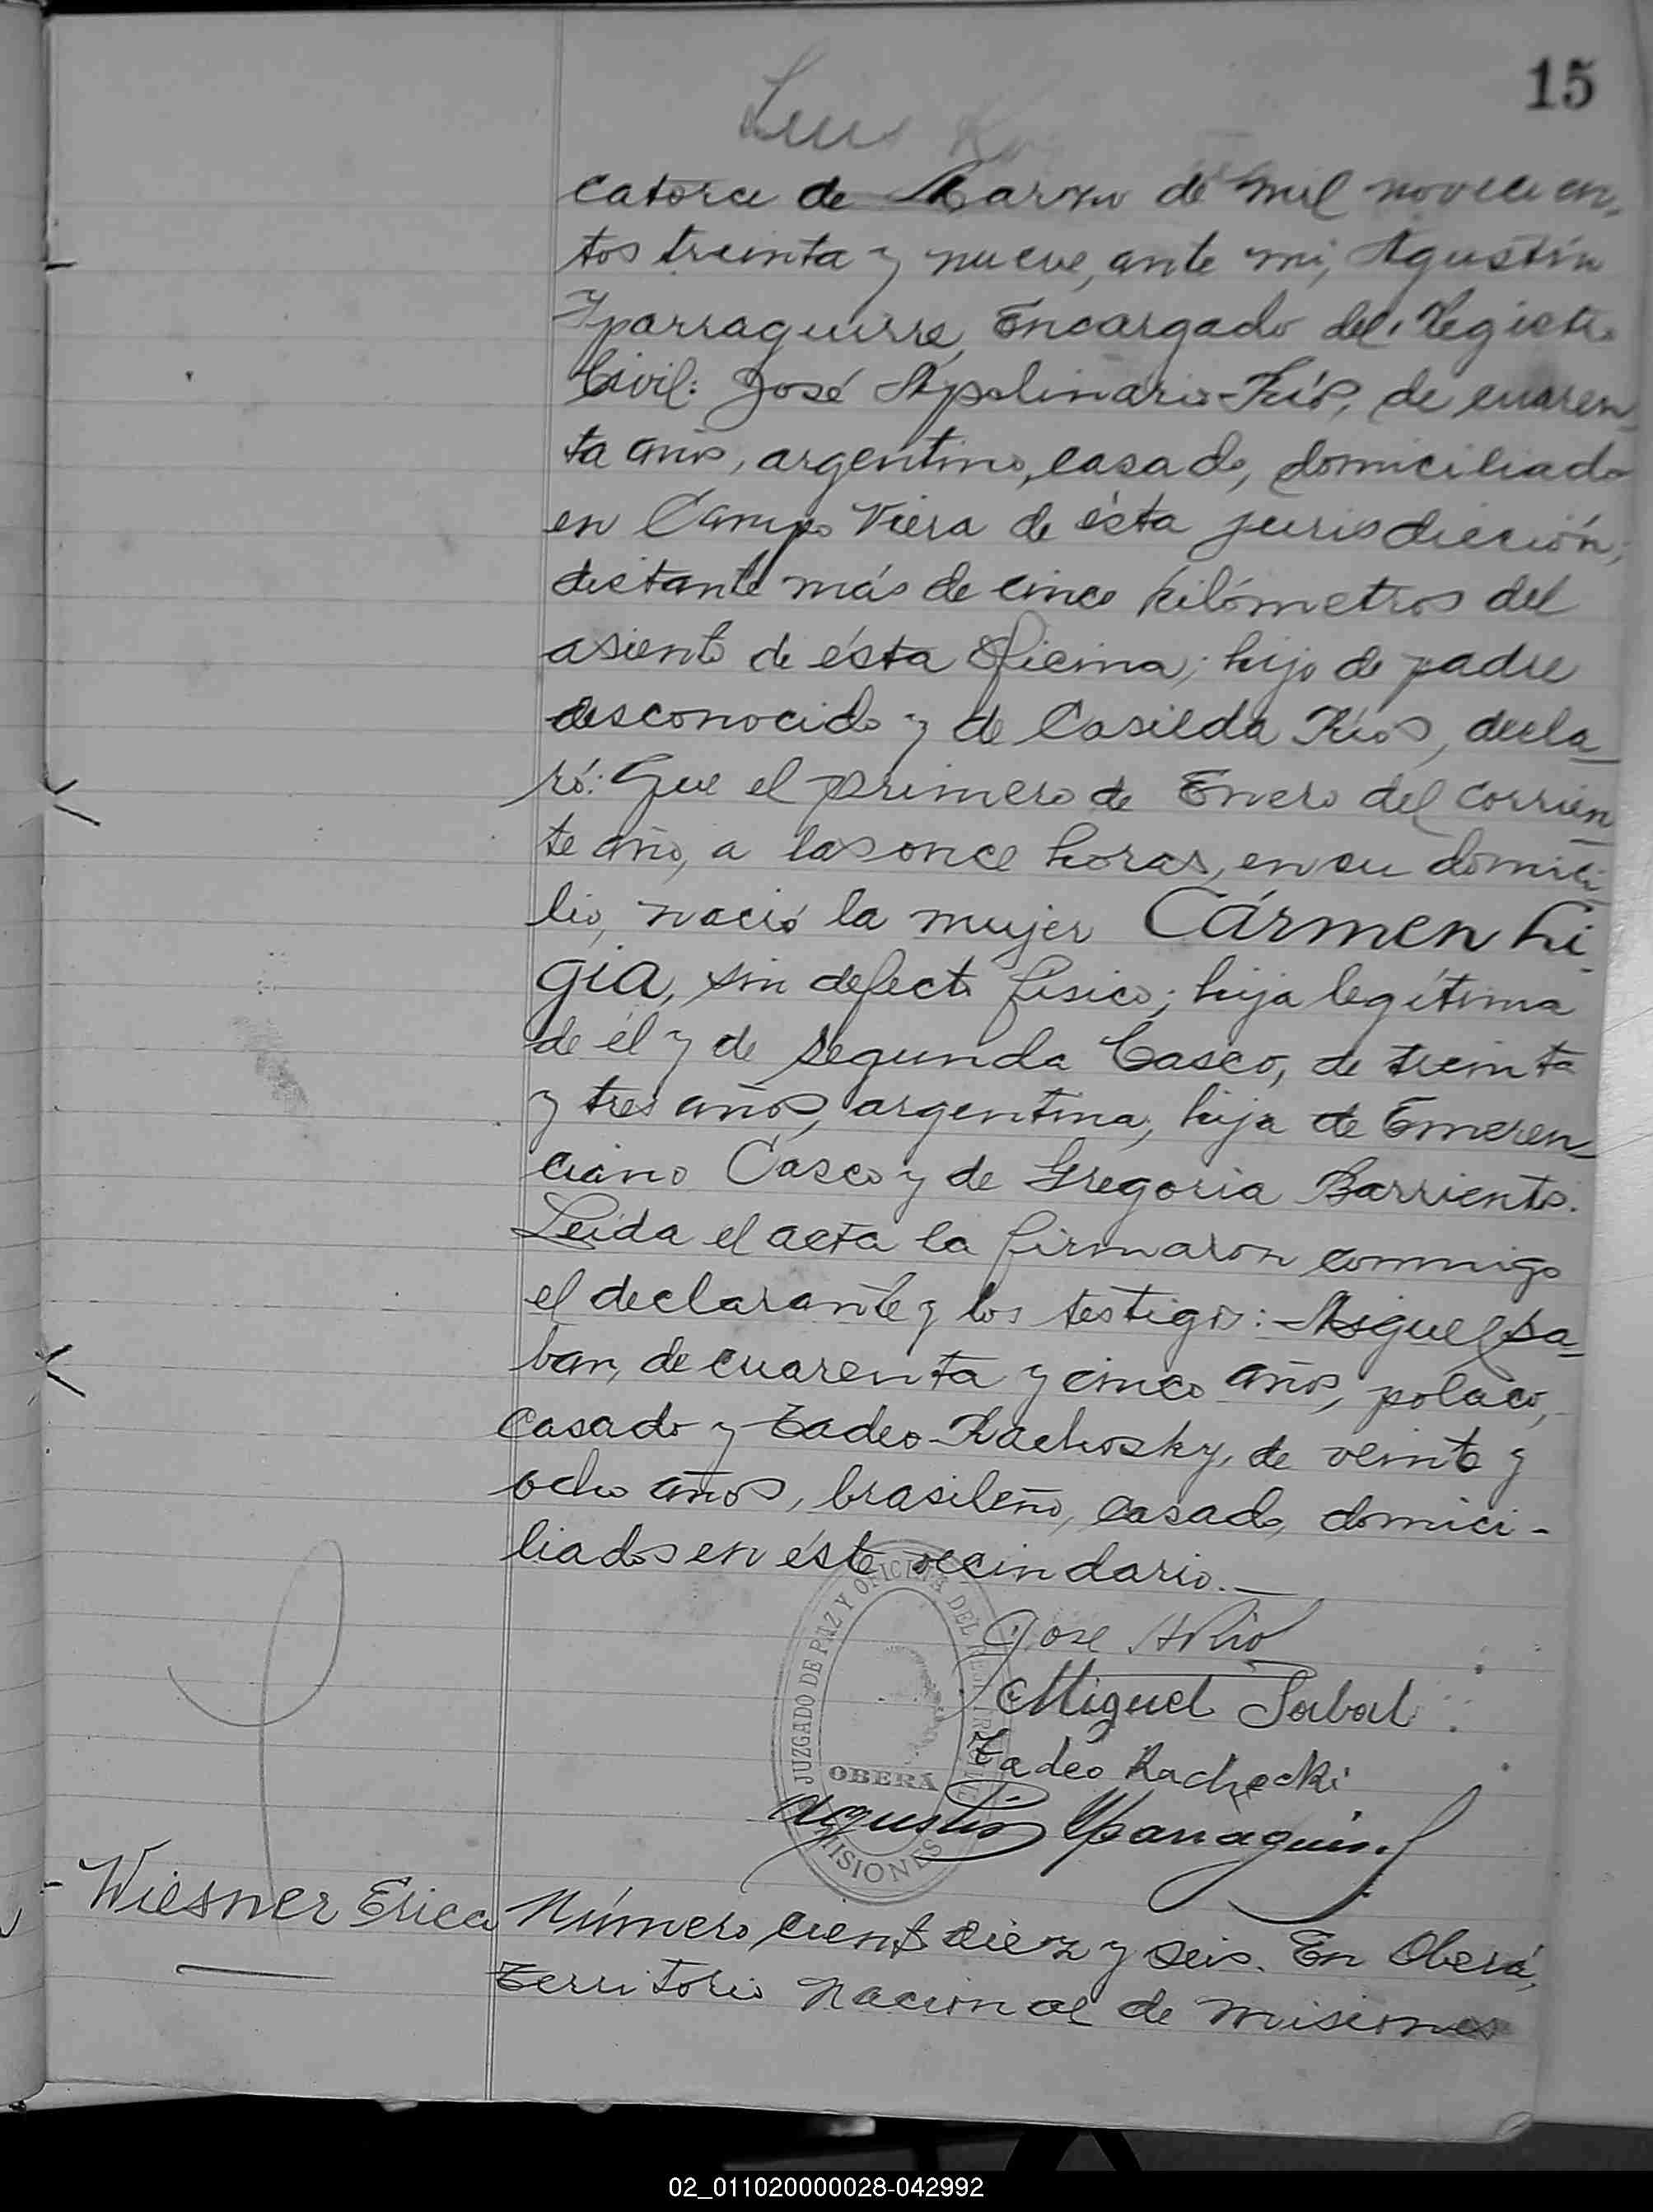 15
Luis
catorce de Marzo de mil novecien-
tos treinta y nueve, ante mi, Agustín
Yparraguirre, Encargado del Registro
Civil: José Apolinario Ríos, de cuaren-
ta años, argentino, casado, domiciliado
en Campo Viera de ésta jurisdicción,
distante más de cinco kilómetros del
asiento de ésta Oficina; hijo de padre
desconocido y de Casilda Ríos, decla-
ró: Que el primero de Enero del corrien-
te año, a las once horas, en su domici-
lio, nació la mujer Cármen Li-
gia, sin defecto físico; hija legítima
de él y de Segunda Casco, de treinta
y tres años, argentina, hija de Emeren-
ciano Casco y de Gregoria Barrientos.
Leída el acta la firmaron conmigo
el declarante y los testigos: Miguel Sa-
bar, de cuarenta y cinco años, polaco,
casado y Tadeo Rachosky, de veinte y
ocho años, brasileño, casado, domici-
liados en éste vecindario.—
JUZGADO DE PAZ Y OFICINA DEL
OBERÁ
MISIONES
José A Rio
Miguel Sabat
Tadeo Rachecki
Agustín Yparraguirre
Wiesner Erica
Número ciento diez y seis. En Oberá,
Territorio Nacional de Misiones
02_011020000028-042992